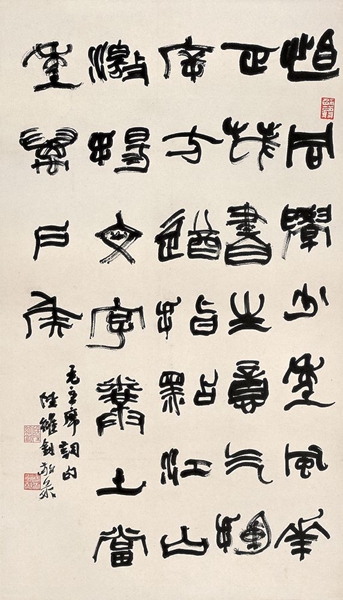 恰同學少年風華
正茂書生意气揮
斥方遒指點江山
激揚文字糞土當
年萬戶侯
毛主席詞句
陸維釗敬